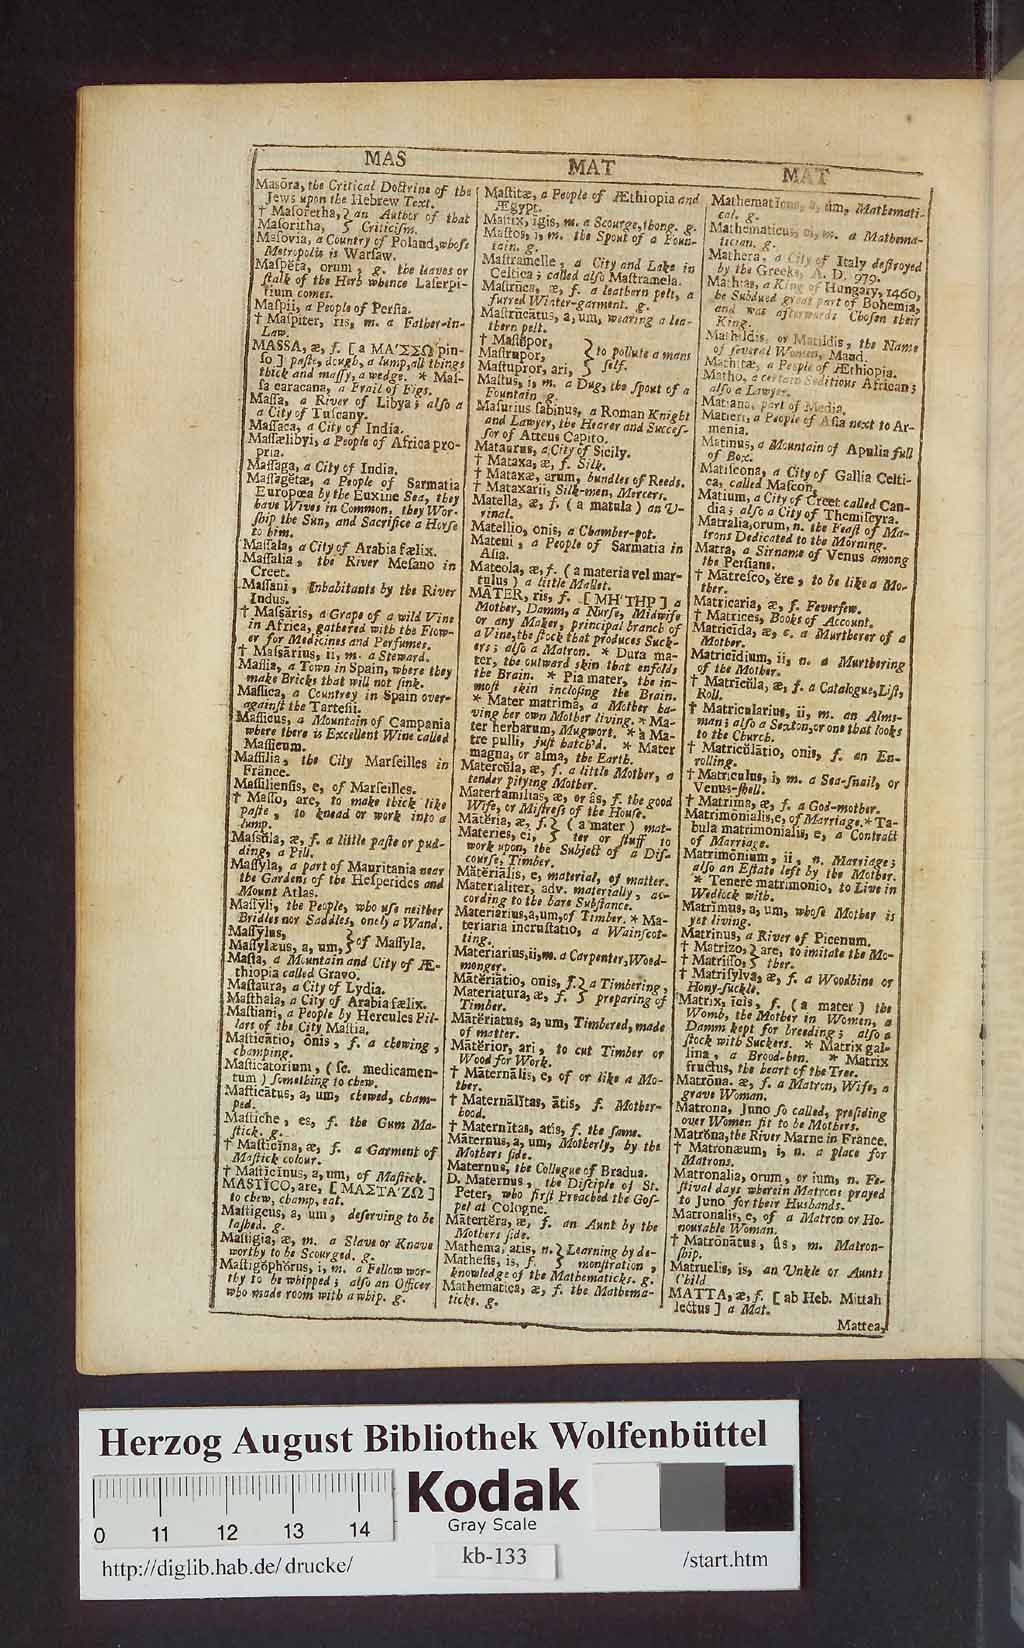 MAS
MAT
MAT
Masōra, the Critical Doctrine of the
Jews upon the Hebrew Text.
† Maſoretha, } an Author of that
Maſoritha, } Criticiſm.
Maſovia, a Country of Poland, whoſe
Metropolis is Warſaw.
Maſpĕta, orum, g. the leaves or
ſtalk of the Herb whence Laſerpi-
tium comes.
Maſpii, a People of Perſia.
† Maſpiter, ris, m. a Father-in-
Law.
MASSA, æ, f. [ a ΜΑ'ΣΣΩ pin-
ſo ] paſte, dough, a lump, all things
thick and maſſy, a wedge. * Maſ-
ſa caracana, a Frail of Figs.
Maſſa, a River of Libya; alſo a
a City of Tuſcany.
Maſſaca, a City of India.
Maſſælibyi, a People of Africa pro-
pria.
Maſſaga, a City of India.
Maſſagĕtæ, a People of Sarmatia
Europœa by the Euxine Sea, they
have Wives in Common, they Wor-
ſhip the Sun, and Sacrifice a Horſe
to him.
Maſſala, a City of Arabia fælix.
Maſſalia, the River Meſano in
Creet.
Maſſani, Inhabitants by the River
Indus.
† Maſsăris, a Grape of a wild Vine
in Africa, gathered with the Flow-
er for Medicines and Perfumes.
† Maſsārius, ii, m. a Steward.
Maſſia, a Town in Spain, where they
make Bricks that will not ſink.
Maſſica, a Countrey in Spain over-
againſt the Tarteſii.
Maſſicus, a Mountain of Campania
where there is Excellent Wine called
Maſſicum.
Maſſilia, the City Marſeilles in
France.
Maſſilienſis, e, of Marſeilles.
† Maſſo, are, to make thick like
paſte, to knead or work into a
lump.
Maſsŭla, æ, f. a little paſte or pud-
ding, a Pill.
Maſſyla, a part of Mauritania near
the Gardens of the Heſperides and
Mount Atlas.
Maſſyli, the People, who uſe neither
Bridles nor Saddles, onely a Wand.
Maſſylus, }
Maſſylæus, a, um, } of Maſſyla.
Maſta, a Mountain and City of Æ-
thiopia called Gravo.
Maſtaura, a City of Lydia.
Maſthala, a City of Arabia fælix.
Maſtiani, a People by Hercules Pil-
lars of the City Maſtia.
Maſticātio, ōnis, f. a chewing,
champing.
Maſticatorium, ( ſc. medicamen-
tum ) ſomething to chew.
Maſticātus, a, um, chewed, cham-
ped.
Maſtiche, es, f. the Gum Ma-
ſtick. g.
† Maſticina, æ, f. a Garment of
Maſtick colour.
† Maſticinus, a, um, of Maſtick.
MASTICO, are, [ ΜΑΣΤΑ'ΖΩ ]
to chew, champ, eat.
Maſtigeus, a, um, deſerving to be
laſhed. g.
Maſtigia, æ, m. a Slave or Knave
worthy to be Scourged. g.
Maſtigŏphŏrus, i, m. a Fellow wor-
thy to be whipped; alſo an Officer
who made room with a whip. g.
Maſtitæ, a People of Æthiopia and
Ægypt.
Maſtix, īgis, m. a Scourge, thong. g.
Maſtos, i, m. the Spout of a Foun-
tain. g.
Maſtramelle, a City and Lake in
Celtica; called alſo Maſtramela.
Maſtrūca, æ, f. a leathern pelt, a
furred Winter-garment. g.
Maſtrūcātus, a, um, wearing a lea-
thern pelt.
† Maſtupor, }
Maſtrupor, } to pollute a mans
Maſtupror, ari, } ſelf.
Maſtus, i, m. a Dug, the ſpout of a
Fountain g.
Maſurius ſabinus, a Roman Knight
and Lawyer, the Hearer and Succeſ-
ſor of Atteus Capito.
Mataurus, a City of Sicily.
† Mataxa, æ, f. Silk.
† Mataxæ, arum, bundles of Reeds.
† Mataxarii, Silk-men, Mercers.
Matella, æ, f. ( a matula ) an U-
rinal.
Matellio, onis, a Chamber-pot.
Mateni, a People of Sarmatia in
Aſia.
Mateola, æ, f. ( a materia vel mar-
tulus ) a little Mallet.
MATER, ris, f. [ ΜΗ'ΤΗΡ ] a
Mother, Damm, a Nurſe, Midwife
or any Maker, principal branch of
a Vine, the ſtock that produces Suck-
ers; alſo a Matron. * Dura ma-
ter, the outward skin that enfolds
the Brain. * Pia mater, the in-
moſt skin incloſing the Brain.
* Mater matrima, a Mother ha-
ving her own Mother living. * Ma-
ter herbarum, Mugwort. * à Ma-
tre pulli, juſt hatch'd. * Mater
magna, or alma, the Earth.
Matercŭla, æ, f. a little Mother, a
tender pitying Mother.
Materfamilias, æ, or âs, f. the good
Wife, or Miſtreſs of the Houſe.
Matĕria, æ, f. } ( a mater ) mat-
Materies, ei, } ter or ſtuff to
work upon, the Subject of a Diſ-
courſe, Timber.
Matĕriālis, e, material, of matter.
Materialiter, adv. materially, ac-
cording to the bare Subſtance.
Materiarius, a, um, of Timber. * Ma-
teriaria incruſtatio, a Wainſcot-
ting.
Materiarius, ii, m. a Carpenter, Wood-
monger.
Mātĕriātio, onis, f. } a Timbering,
Materiatura, æ, f. } preparing of
Timber.
Mātĕriatus, a, um, Timbered, made
of matter.
Mātĕrior, ari, to cut Timber or
Wood for Work.
† Māternālis, e, of or like a Mo-
ther.
† Maternālĭtas, ātis, f. Mother-
hood.
† Maternĭtas, atis, f. the ſame.
Māternus, a, um, Motherly, by the
Mothers ſide.
Maternus, the Collegue of Bradua.
D. Maternus, the Diſciple of St.
Peter, who firſt Preached the Goſ-
pel at Cologne.
Mātertĕra, æ, f. an Aunt by the
Mothers ſide.
Mathema, atis, n. } Learning by de-
Matheſis, is, f. } monſtration,
knowledge of the Mathematicks. g.
Mathematica, æ, f. the Mathema-
ticks. g.
Mathematicus, a, um, Mathemati-
cal. g.
Mathematicus, ci, m. a Mathema-
tician. g.
Mathera, a City of Italy deſtroyed
by the Greeks, A. D. 979.
Mathias, a King of Hungary, 1460,
he Subdued great part of Bohemia,
and was afterwards Choſen their
King.
Mathildis, or Matildis, the Name
of ſeveral Women, Maud.
Mathitæ, a People of Æthiopia.
Matho, a certain Seditious African;
alſo a Lawyer.
Matiana, part of Media.
Matieri, a People of Aſia next to Ar-
menia.
Matinus, a Mountain of Apulia full
of Box.
Matiſcona, a City of Gallia Celti-
ca, called Maſcon.
Matium, a City of Creet called Can-
dia; alſo a City of Themiſcyra.
Matralia, orum, n. the Feaſt of Ma-
trons Dedicated to the Morning.
Matra, a Sirname of Venus among
the Perſians.
† Mātreſco, ĕre, to be like a Mo-
ther.
Matricaria, æ, f. Feverfew.
† Matrices, Books of Account.
Matricīda, æ, c. a Murtherer of a
Mother.
Matricīdium, ii, n. a Murthering
of the Mother.
† Matricŭla, æ, f. a Catalogue, Liſt,
Roll.
† Matricularius, ii, m. an Alms-
man; alſo a Sexton, or one that looks
to the Church.
† Matricŭlātio, onis, f. an En-
rolling.
† Matriculus, i, m. a Sea-ſnail, or
Venus-ſhell.
† Matrima, æ, f. a God-mother.
Matrimōnialis, e, of Marriage. * Ta-
bula matrimonialis, e, a Contract
of Marriage.
Matrimōnium, ii, n. Marriage;
alſo an Eſtate left by the Mother.
* Tenere matrimonio, to Live in
Wedlock with.
Matrīmus, a, um, whoſe Mother is
yet living.
Matrinus, a River of Picenum.
† Matrizo, } are, to imitate the Mo-
† Matriſſo, } ther.
† Matriſylva, æ, f. a Woodbine or
Hony-ſuckle.
Matrix, icis, f. ( a mater ) the
Womb, the Mother in Women, a
Damm kept for breeding; alſo a
ſtock with Suckers. * Matrix gal-
lina, a Brood-hen. * Matrix
fructus, the heart of the Tree.
Matrōna, æ, f. a Matron, Wife, a
grave Woman.
Matrona, Juno ſo called, preſiding
over Women fit to be Mothers.
Matrŏna, the River Marne in France.
† Matronæum, i, n. a place for
Matrons.
Matronalia, orum, or ium, n. Fe-
ſtival days wherein Matrons prayed
to Juno for their Husbands.
Matronalis, e, of a Matron or Ho-
nourable Woman.
† Matrōnātus, ûs, m. Matron-
ſhip.
Matruelis, is, an Unkle or Aunts
Child
MATTA, æ, f. [ ab Heb. Mittah
lectus ] a Mat.
Mattea,
Herzog August Bibliothek Wolfenbüttel
Kodak
Gray Scale
0 11 12 13 14
kb-133
http://diglib.hab.de/drucke/
/start.htm